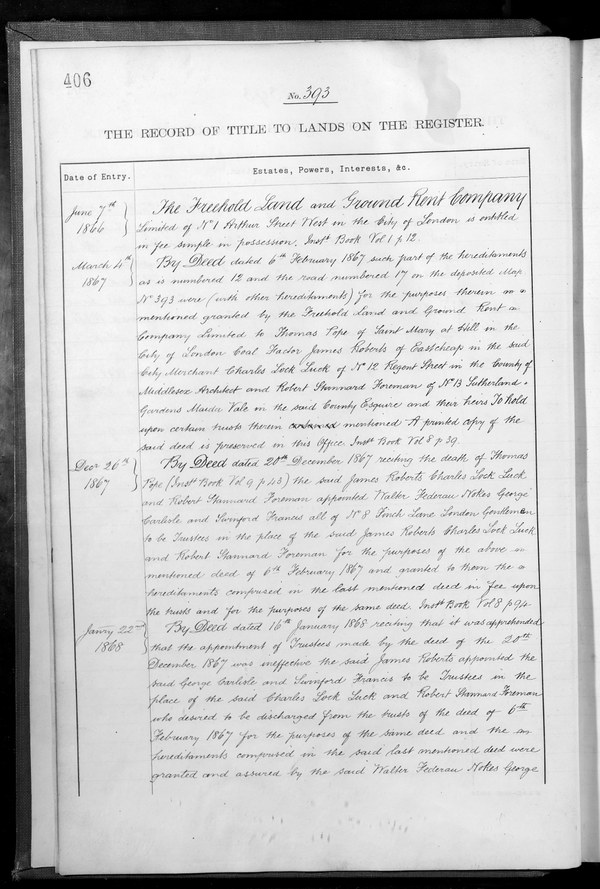 406
No. 393
THE RECORD OF TITLE TO LANDS ON THE REGISTER.
Date of Entry.
Estates, Powers, Interests, &c.
June 7th 1866
The Freehold Land and Ground Rent Company
Limited of No 1 Arthur Street West in the City of London is entitled
in fee simple in possession. Inst. Book Vol 1 p 12.
March 4th 1867
By Deed dated 6th February 1867 such part of the hereditaments
as is numbered 12 and the road numbered 17 on the deposited Map
No 393 were (with other hereditaments) for the purposes therein
mentioned granted by the Freehold Land and Ground Rent
Company Limited to Thomas Pope of Saint Mary at Hill in the
City of London Coal Factor James Roberts of Eastcheap in the said
City Merchant Charles Lock Luck of No 12 Regent Street in the County of
Middlesex Architect and Robert Stannard Foreman of No 13 Sutherland
Gardens Maida Vale in the said County Esquire and their heirs To hold
upon certain trusts therein mentioned A printed copy of the
said deed is preserved in this Office Inst. Book Vol 8 p 39.
Decr 26th 1867
By Deed dated 20th December 1867 reciting the death of Thomas
Pope (Inst. Book Vol 9 p 43) the said James Roberts Charles Lock Luck
and Robert Stannard Foreman appointed Walter Federau Nokes George
Carlisle and Swinford Francis all of No 8 Finch Lane London Gentlemen
to be Trustees in the place of the said James Roberts Charles Lock Luck
and Robert Stannard Foreman for the purposes of the above
mentioned deed of 6th February 1867 and granted to them the
hereditaments comprised in the last mentioned deed in fee upon
the trusts and for the purposes of the same deed. Inst. Book Vol 8 p 94
Janry 22nd 1868
By Deed dated 16th January 1868 reciting that it was apprehended
that the appointment of Trustees made by the deed of the 20th
December 1867 was ineffective the said James Roberts appointed the
said George Carlisle and Swinford Francis to be Trustees in the
place of the said Charles Lock Luck and Robert Stannard Foreman
who desired to be discharged from the trusts of the deed of 6th
February 1867 for the purposes of the same deed and the
hereditaments comprised in the said last mentioned deed were
granted and assured by the said Walter Federau Nokes George